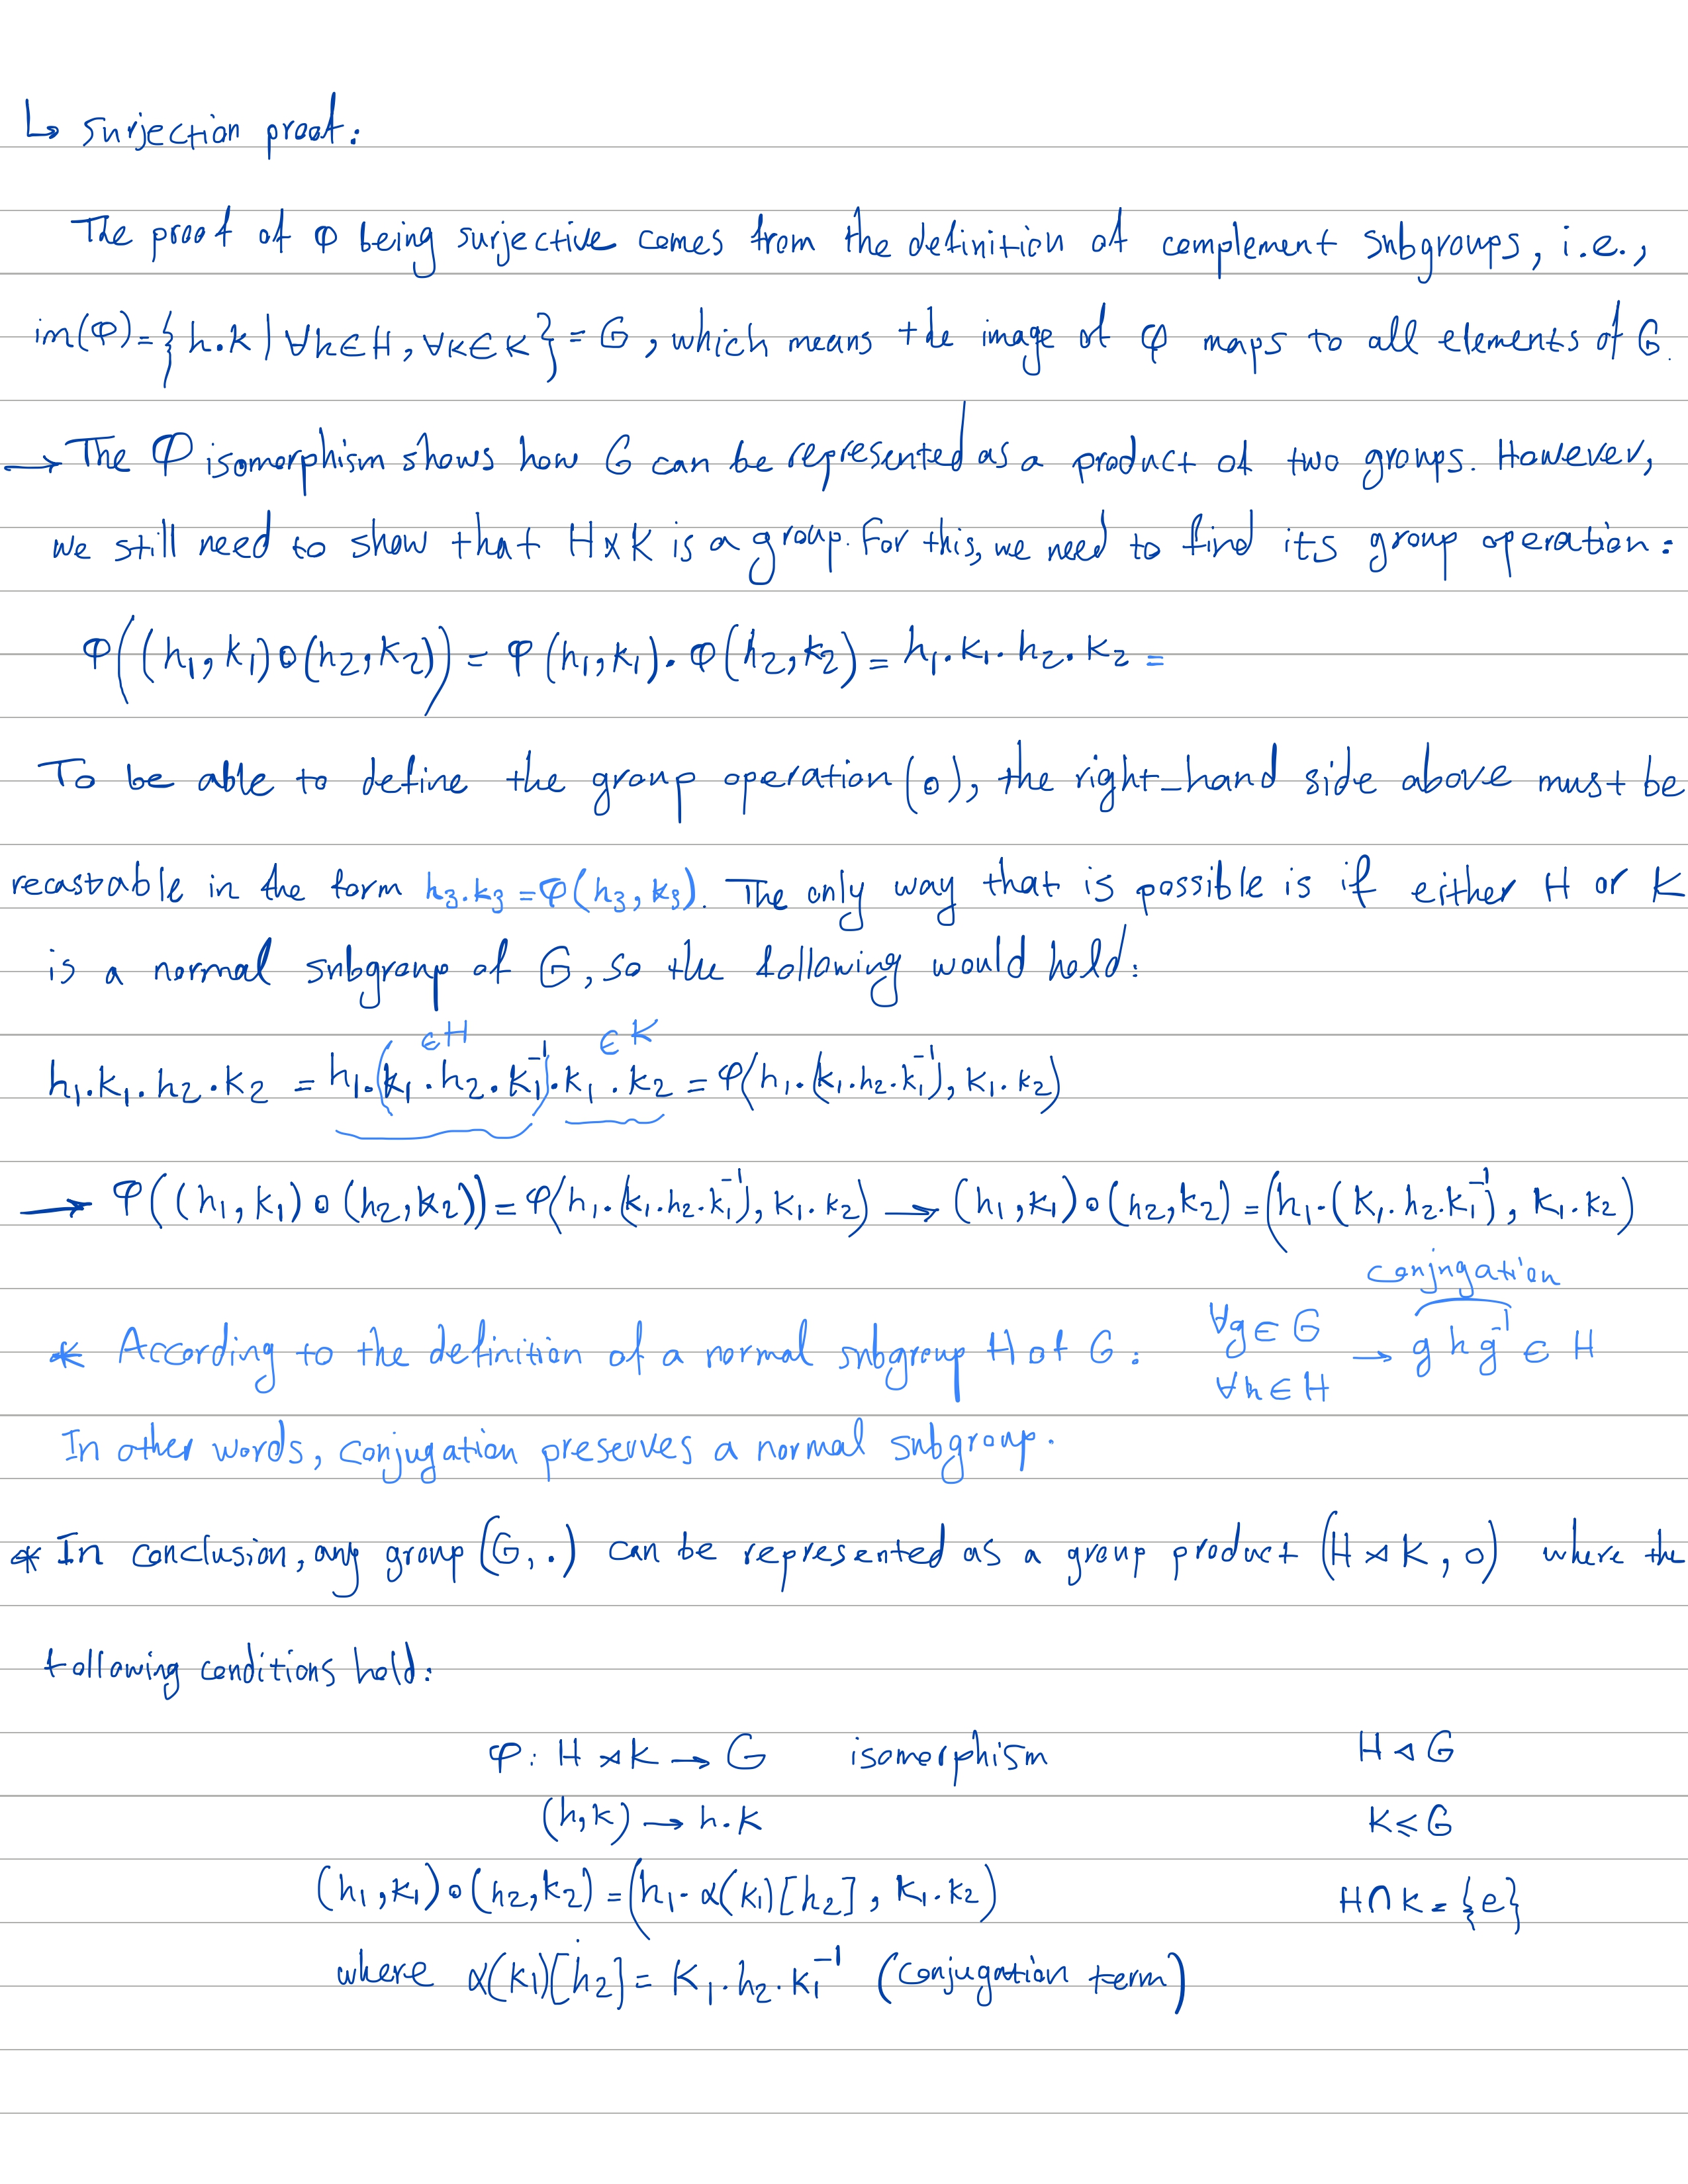 ↳ surjection proof:
The proof of φ being surjective comes from the definition of complement subgroups, i.e.,
im(φ)={h.k | ∀h∈H, ∀k∈K} = G, which means the image of φ maps to all elements of G.
→ The φ isomorphism shows how G can be represented as a product of two groups. However,
we still need to show that H⋊K is a group. For this, we need to find its group operation:
φ((h₁,k₁)∘(h₂,k₂)) = φ(h₁,k₁).φ(h₂,k₂) = h₁.k₁.h₂.k₂ =
To be able to define the group operation (∘), the right-hand side above must be
recastable in the form h₃.k₃ = φ(h₃,k₃). The only way that is possible is if either H or K
is a normal subgroup of G, so the following would hold:
∈H ∈K
h₁.k₁.h₂.k₂ = h₁.(k₁.h₂.k₁⁻¹).k₁.k₂ = φ(h₁.(k₁.h₂.k₁⁻¹), k₁.k₂)
→ φ((h₁,k₁)∘(h₂,k₂)) = φ(h₁.(k₁.h₂.k₁⁻¹), k₁.k₂) → (h₁,k₁)∘(h₂,k₂) = (h₁.(k₁.h₂.k₁⁻¹), k₁.k₂)
conjugation
* According to the definition of a normal subgroup H of G: ∀g∈G ∀h∈H → g h g⁻¹ ∈ H
In other words, conjugation preserves a normal subgroup.
* In conclusion, any group (G, .) can be represented as a group product (H⋊K, ∘) where the
following conditions hold:
φ: H⋊K → G isomorphism H ⊲ G
(h,k) → h.k K ≤ G
(h₁,k₁)∘(h₂,k₂) = (h₁.α(k₁)[h₂], k₁.k₂) H∩K = {e}
where α(k₁)[h₂] = k₁.h₂.k₁⁻¹ (conjugation term)